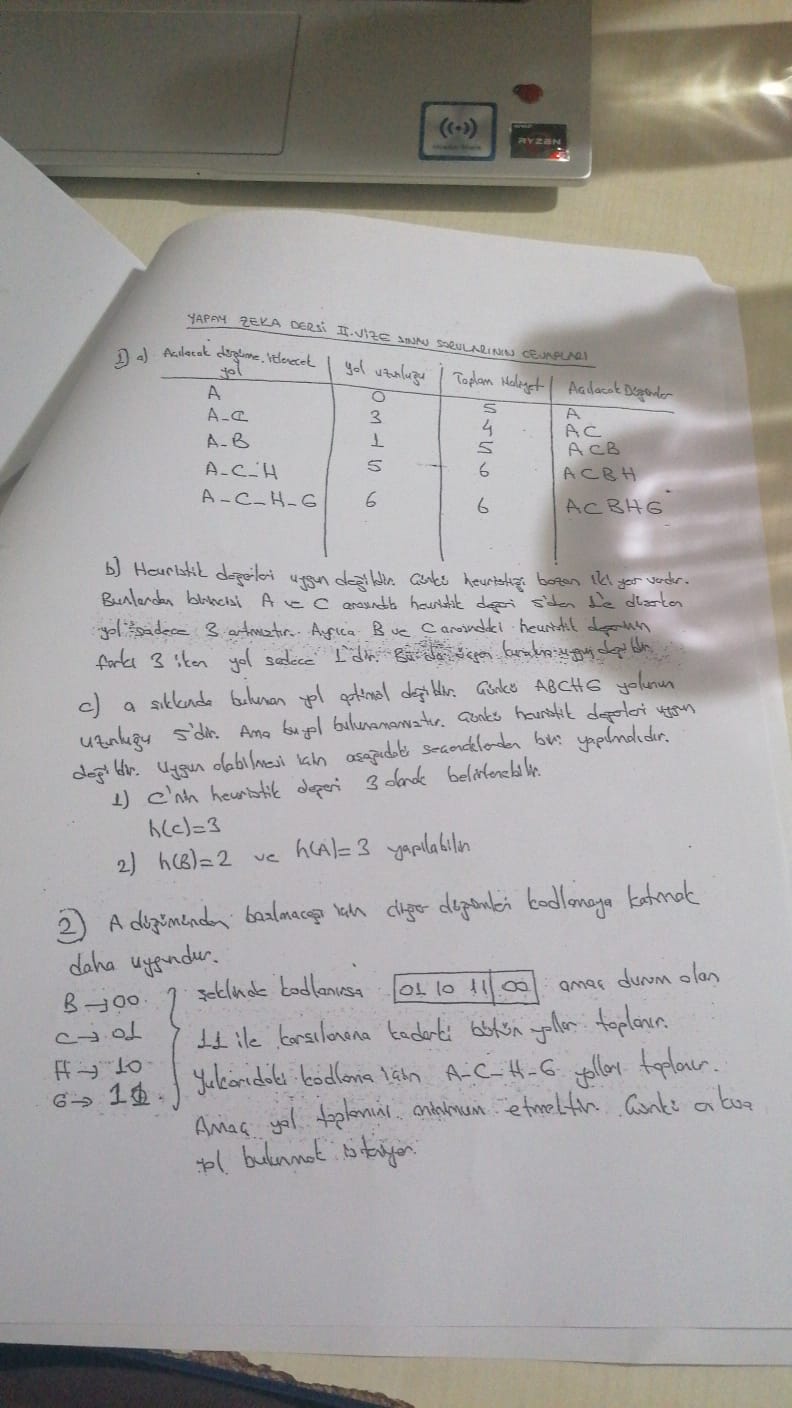 RYZEN
YAPAY ZEKA DERSİ II. VİZE SINAV SORULARININ CEVAPLARI
1) a) Açılacak düğüme, izlenecek yol | Yol uzunluğu | Toplam Maliyet | Açılacak Düğümler
A | 0 | 5 | A
A-C | 3 | 4 | AC
A-B | 1 | 5 | ACB
A-C-H | 5 | 6 | ACBH
A-C-H-G | 6 | 6 | ACBHG
b) Heuristik değerleri uygun değildir. Çünkü heuristiği bozan iki yer vardır.
Bunlardan birincisi A ve C arasındaki heuristik değeri 5'den 1'e düşerken
yol sadece 3 artmıştır. Ayrıca B ve C arasındaki heuristik değerinin
farkı 3 iken yol sadece 1'dir. uygun değildir.
c) a şıkkında bulunan yol optimal değildir. Çünkü ABCHG yolunun
uzunluğu 5'dir. Ama bu yol bulunamamıştır. Çünkü heuristik değerleri uygun
değildir. Uygun olabilmesi için aşağıdaki seçeneklerden biri yapılmalıdır.
1) C'nin heuristik değeri 3 olarak belirlenebilir.
h(C)=3
2) h(B)=2 ve h(A)=3 yapılabilir
2) A düğümünden başlanacağı için diğer düğümleri kodlamaya katmak
daha uygundur.
B → 00 şeklinde kodlanırsa 01 10 11 00 amaç durum olan
C → 01 11 ile karşılaşana kadarki bütün yollar toplanır.
H → 10 Yukarıdaki kodlama için A-C-H-G yolları toplanır.
G → 11 Amaç yol toplamını minimum etmektir. Çünkü en kısa
yol bulunmak isteniyor.